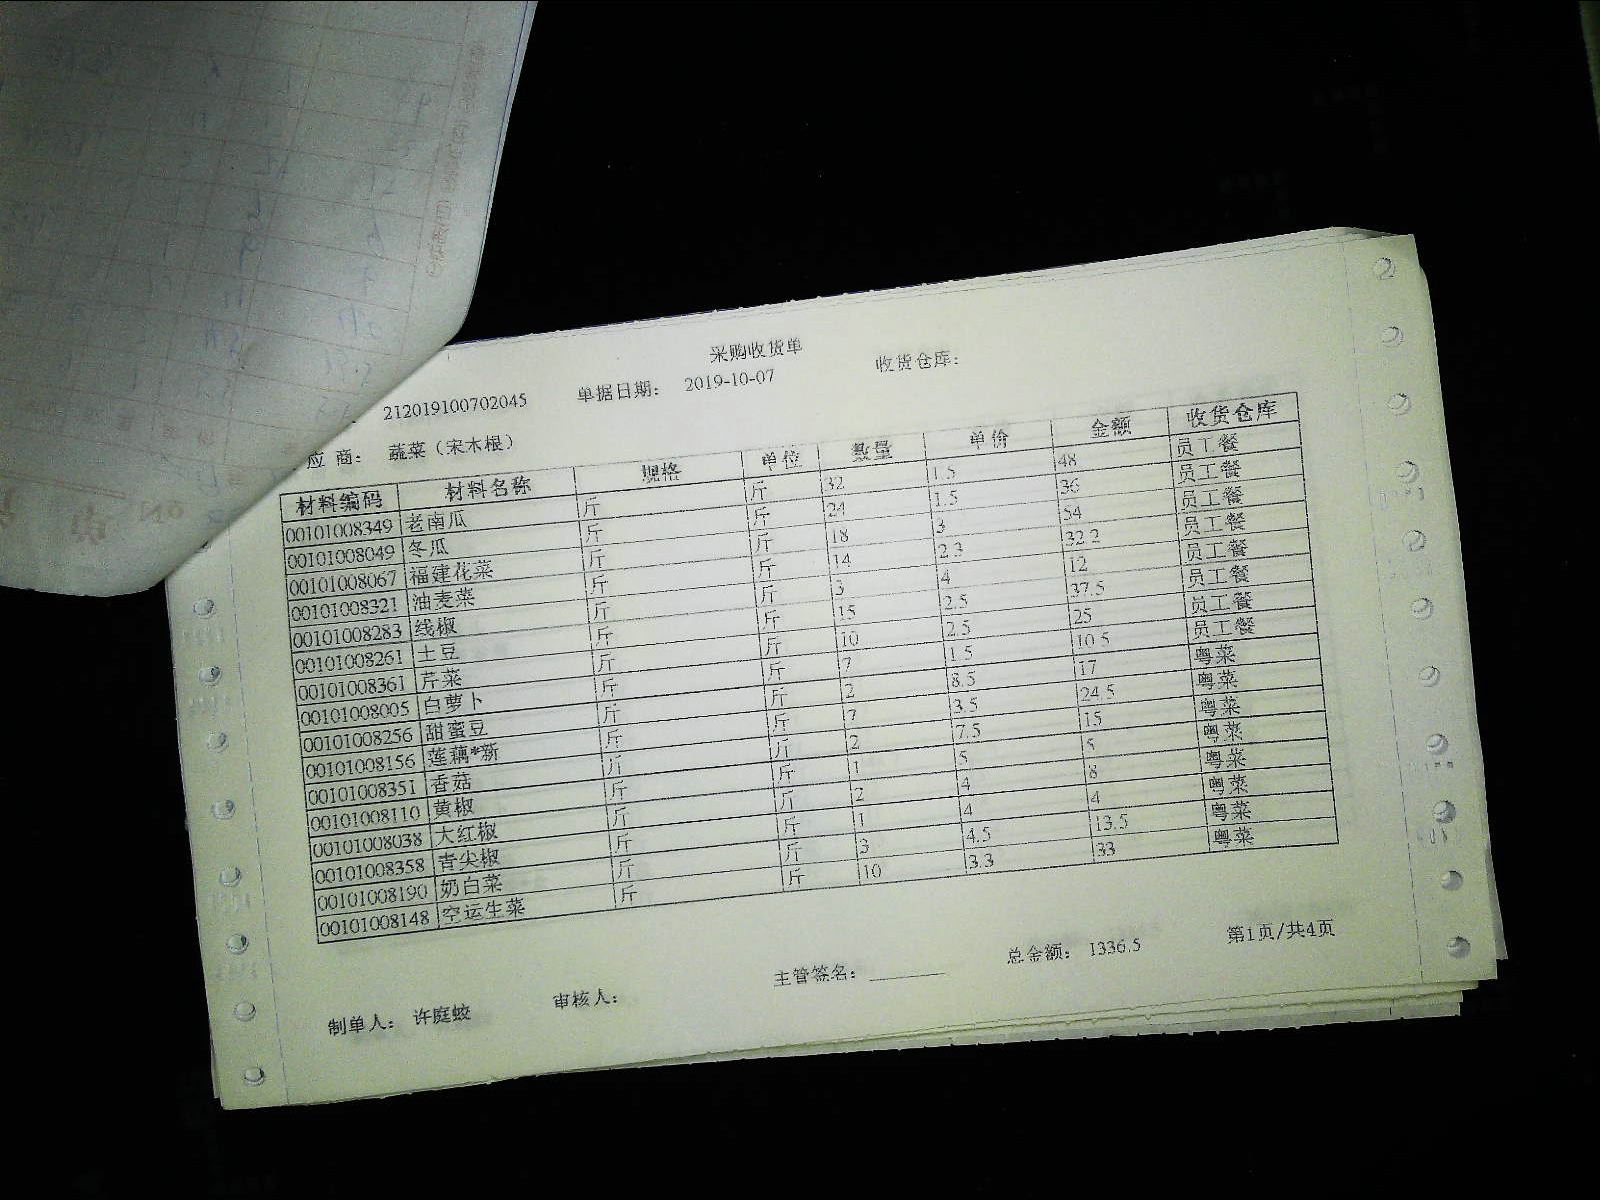 采购收货单
212019100702045 单据日期： 2019-10-07 收货仓库：
应 商： 蔬菜（宋木根）
材料编码 材料名称 规格 单位 数量 单价 金额 收货仓库
00101008349 老南瓜 斤 斤 32 1.5 48 员工餐
00101008049 冬瓜 斤 斤 24 1.5 36 员工餐
00101008067 福建花菜 斤 斤 18 3 54 员工餐
00101008321 油麦菜 斤 斤 14 2.3 32.2 员工餐
00101008283 线椒 斤 斤 3 4 12 员工餐
00101008261 土豆 斤 斤 15 2.5 37.5 员工餐
00101008361 芹菜 斤 斤 10 2.5 25 员工餐
00101008005 白萝卜 斤 斤 7 1.5 10.5 员工餐
00101008256 甜蜜豆 斤 斤 2 8.5 17 粤菜
00101008156 莲藕*新 斤 斤 7 3.5 24.5 粤菜
00101008351 香菇 斤 斤 2 7.5 15 粤菜
00101008110 黄椒 斤 斤 1 5 5 粤菜
00101008038 大红椒 斤 斤 2 4 8 粤菜
00101008358 青尖椒 斤 斤 1 4 4 粤菜
00101008190 奶白菜 斤 斤 3 4.5 13.5 粤菜
00101008148 空运生菜 斤 斤 10 3.3 33 粤菜
制单人： 许庭蛟 审核人： 主管签名： 总金额： 1336.5 第1页/共4页